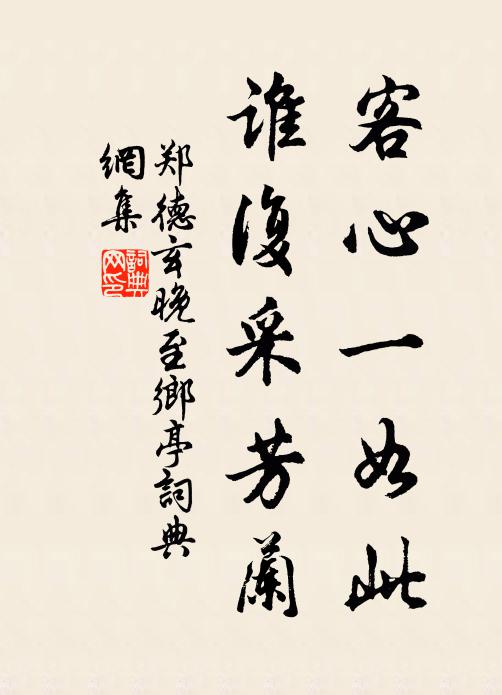 客心一如此
谁復采芳蘭
郑德玄晚至鄉亭詞典
網集
詞典
网印